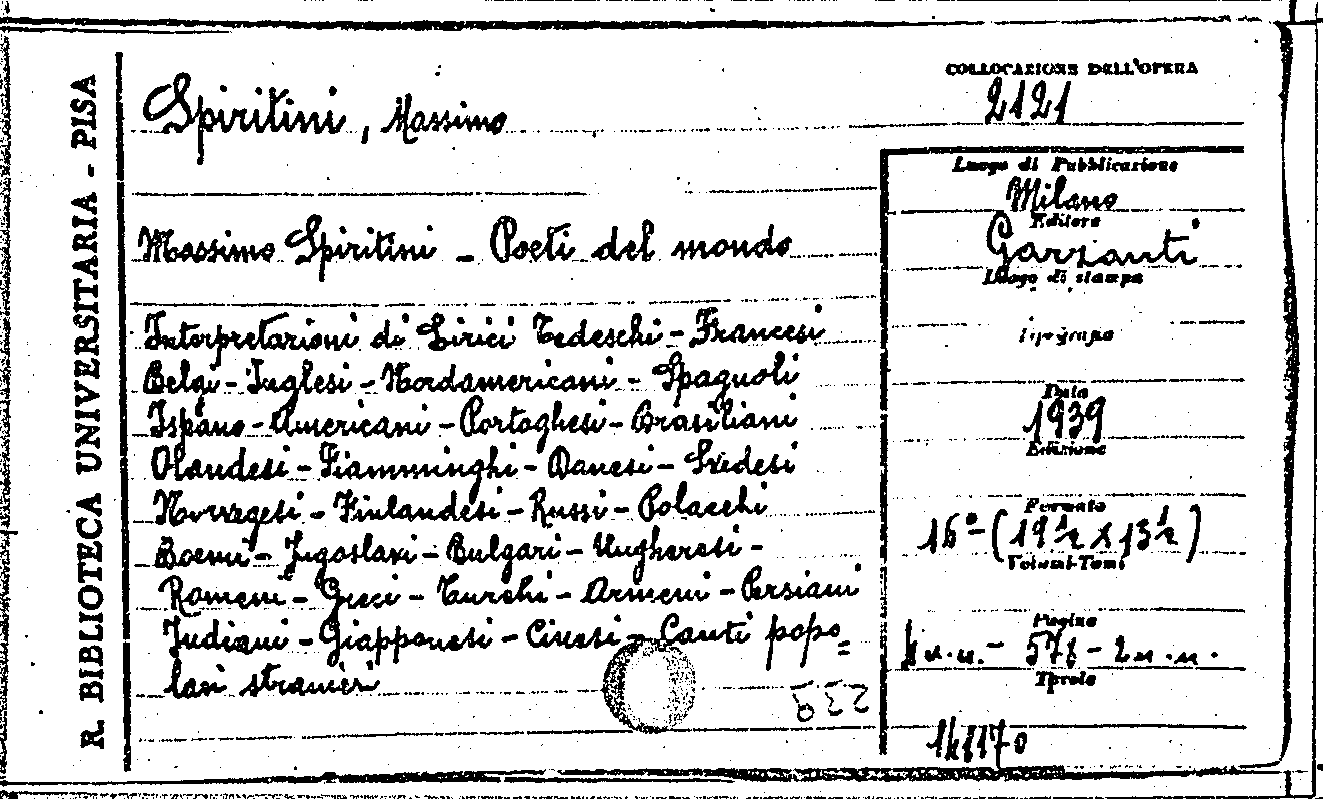 R. BIBLIOTECA UNIVERSITARIA - PISA
Spiritini, Massimo
Massimo Spiritini - Poeti del mondo
Interpretazioni di Lirici Tedeschi - Francesi
Belgi - Inglesi - Nordamericani - Spagnoli
Ispano - Americani - Portoghesi - Brasiliani
Olandesi - Fiamminghi - Danesi - Svedesi
Norvegesi - Finlandesi - Russi - Polacchi
Boemi - Jugoslavi - Bulgari - Ungheresi -
Romeni - Greci - Turchi - Armeni - Persiani
Indiani - Giapponesi - Cinesi - Canti popo=
lari stranieri
COLLOCAZIONE DELL'OPERA
2121
Luogo di Pubblicazione
Milano
Editore
Garzanti
Luogo di stampa
Tipografo
Data
1939
Edizione
Formato
16° - (19½ x 13½)
Volumi-Tomi
Pagine
4 n.n. - 578 - 2 n.n.